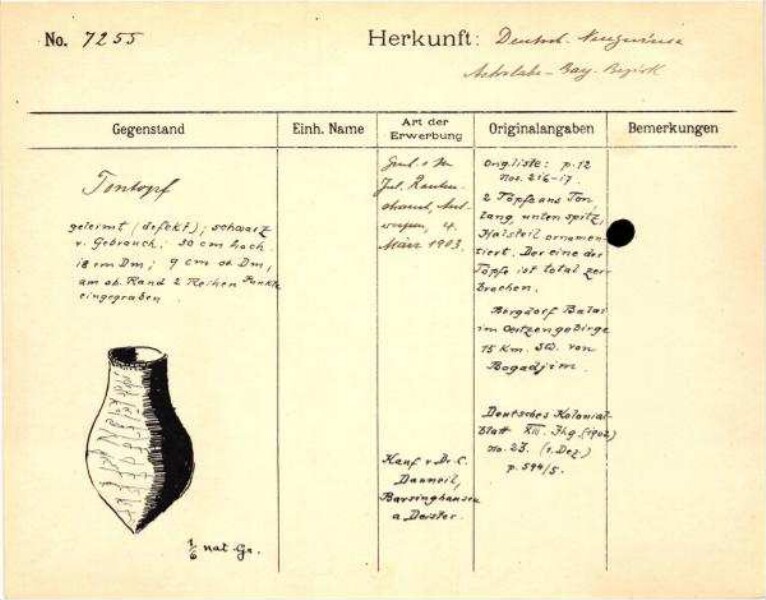 No. 7255
Herkunft: Deutsch-Neuguinea
Astrolabe-Bay-Bezirk
Gegenstand
Einh. Name
Art der Erwerbung
Originalangaben
Bemerkungen
Tontopf
geleimt (defekt); schwarz
v. Gebrauch; 30 cm hoch
18 cm Dm; 9 cm ob. Dm,
am ob. Rand 2 Reihen Punkte
eingegraben
1/6 nat Gr.
Jul.
4.
März 1903.
Kauf v Dr. C.
Danneil,
Barsinghausen
a Deister.
Orig. liste: p. 12
nos. 216-17.
2 Töpfe aus Ton,
lang, unten spitz,
Halsteil ornamen-
tiert. Der eine der
Töpfe ist total zer-
brochen.
Bergdorf Balai
im Oertzengebirge
15 Km. SW. von
Bogadjim.
Deutsches Kolonial-
blatt XIII. Jhg. (1902)
no. 23. (1. Dez.)
p. 594/5.